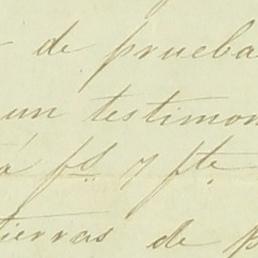 de prueba
un testimon
á fs. 7 fte
tierras de p